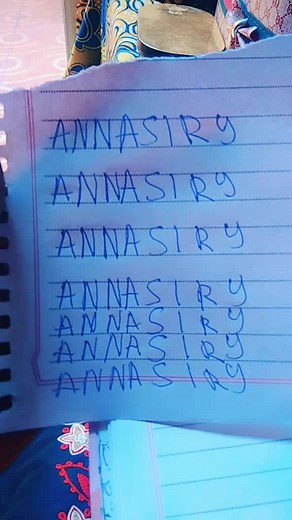 ANNASIRY
ANNASIRY
ANNASIRY
ANNASIRY
ANNASIRY
ANNASIRY
ANNASIRY